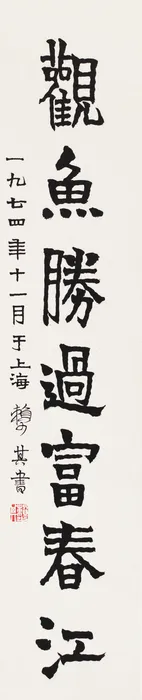 觀魚勝過富春江
一九七四年十一月于上海 賴少其書